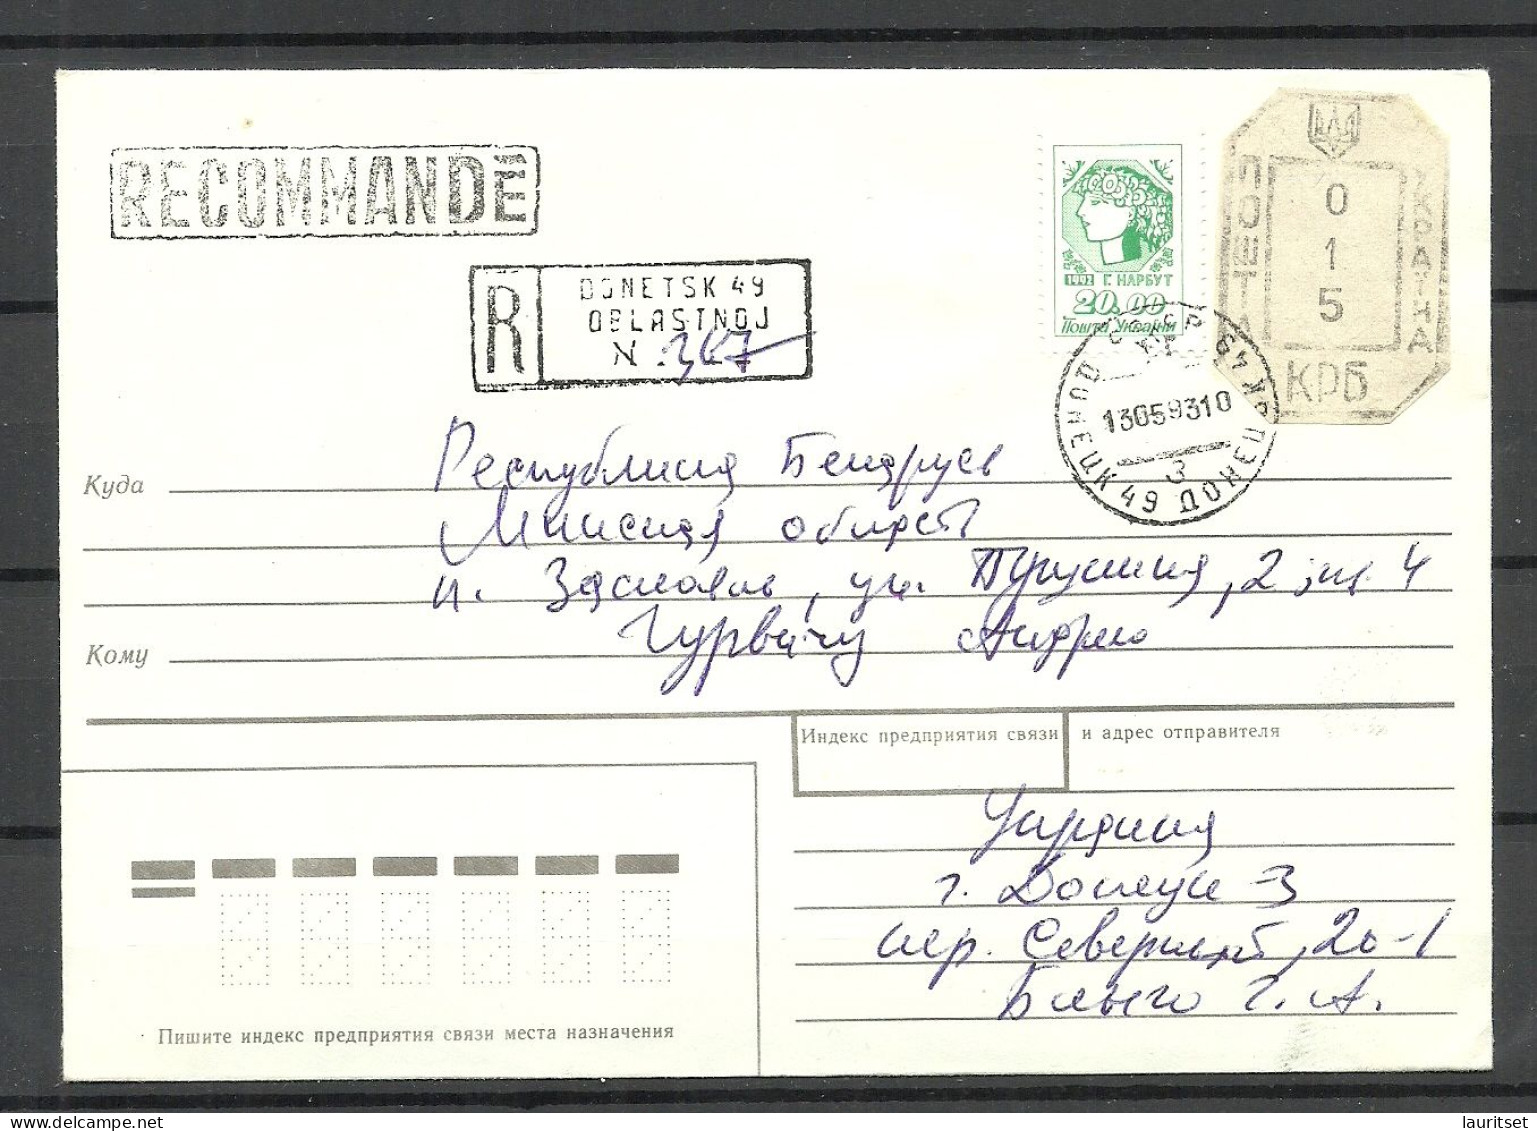 RECOMMANDÉ
R DONETSK 49
OBLASTNOJ
N 367
1992 Г. НАРБУТ
20.00
Пошта України
ПОШТА УКРАЇНА
0
1
5
КРБ
13059310
3
ДОНЕЦК 49 ДОНЕЦЬК 49
Республика Беларусь
Куда
Минская область
г. Заславль, ул. 2, кв. 4
Гурвичу Андрею
Кому
Индекс предприятия связи и адрес отправителя
Украина
г. Донецк-3
пер. Северный, 20-1
Г. А.
Пишите индекс предприятия связи места назначения
lauritset